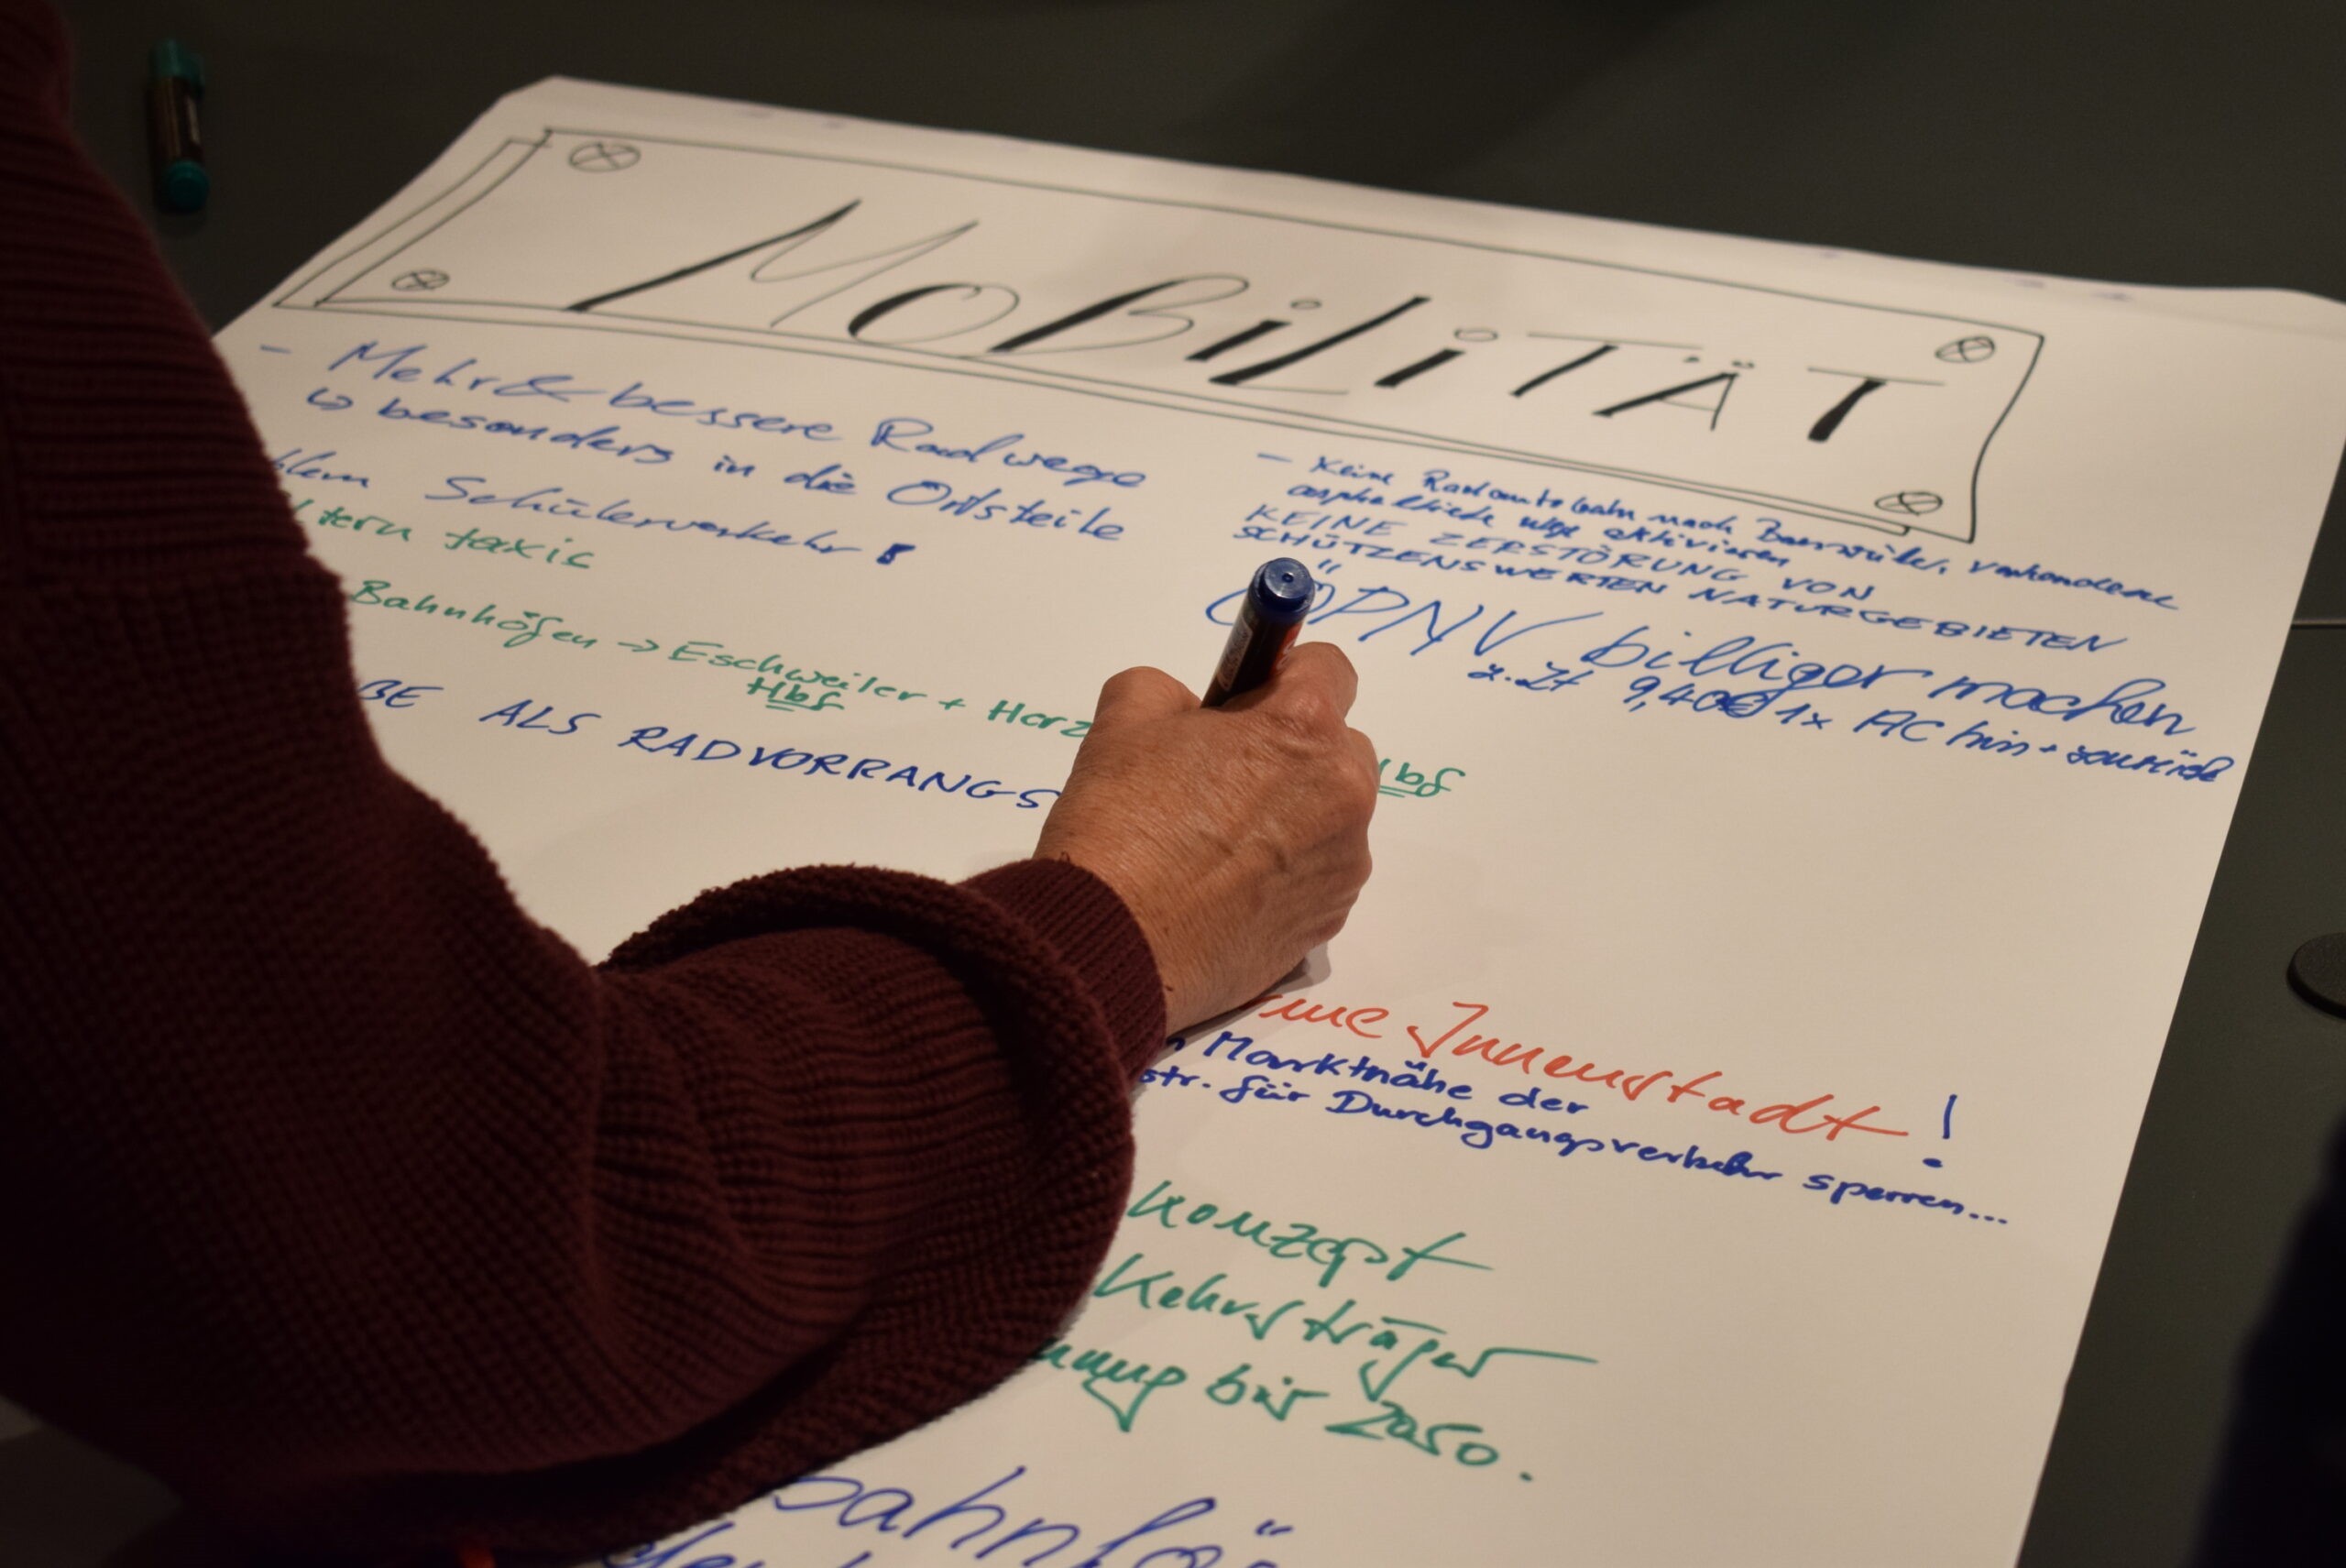 MOBiLiTÄT
- Mehr & bessere Radwege
↳ besonders in die Ortsteile
blem Schülerverkehr!
ltern taxis
Bahnhöfen → Eschweiler + Horz
Hbf Hbf
BE ALS RADVORRANGS
- Keine Radautobahn nach vorhandene
asphaltierte wege aktivieren
KEINE ZERSTÖRUNG VON
SCHÜTZENSWERTEN NATURGEBIETEN
ÖPNV billiger machen
z.Zt 9,40€ 1x AC hin + zurück
Innenstadt!
Marktnähe der
str. für Durchgangsverkehr sperren...
Konzept
kehrsträger
nung bis 2050.
bahnhö